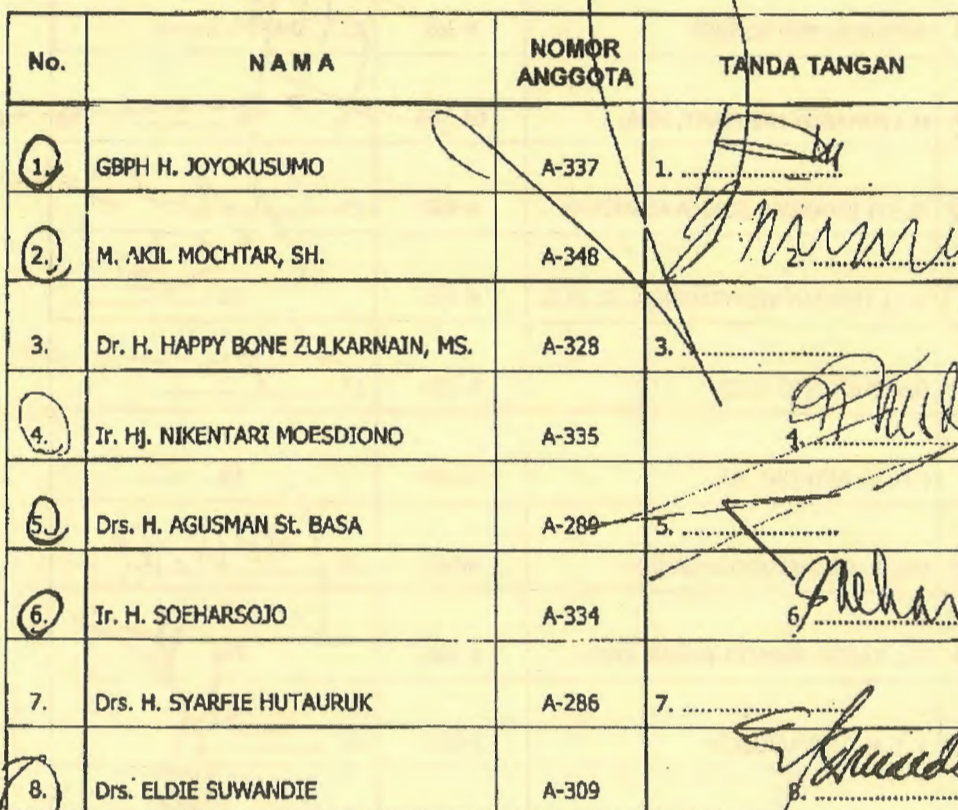 No. NAMA NOMOR ANGGOTA TANDA TANGAN
1. GBPH H. JOYOKUSUMO A-337 1. ....................
2. M. AKIL MOCHTAR, SH. A-348 2. ....................
3. Dr. H. HAPPY BONE ZULKARNAIN, MS. A-328 3. ....................
4. Ir. Hj. NIKENTARI MOESDIONO A-335 4. ....................
5. Drs. H. AGUSMAN St. BASA A-289 5. ....................
6. Ir. H. SOEHARSOJO A-334 6. ....................
7. Drs. H. SYARFIE HUTAURUK A-286 7. ....................
8. Drs. ELDIE SUWANDIE A-309 8. ....................